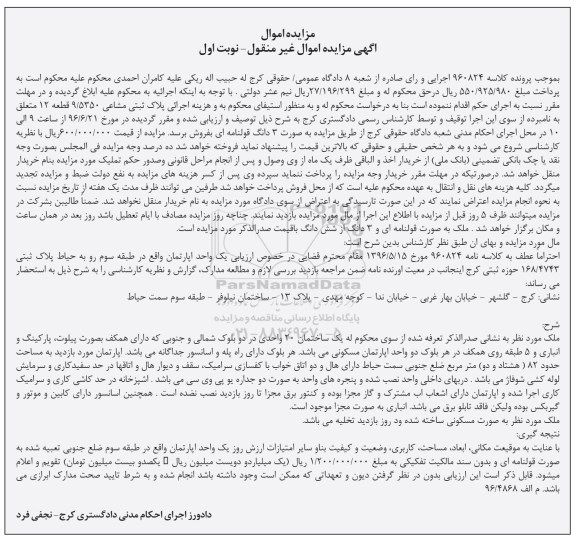 مزایده اموال
آگهی مزایده اموال غیر منقول - نوبت اول
بموجب پرونده کلاسه ۹۶۰۸۲۴ اجرایی و رای صادره از شعبه ۸ دادگاه عمومی/ حقوقی کرج له حبیب اله ریکی علیه کامران احمدی محکوم علیه محکوم است به
پرداخت مبلغ ۵۵۰/۹۲۵/۹۸۰ ریال درحق محکوم له و مبلغ ۲۷/۱۹۶/۲۹۹ریال نیم عشر دولتی . با توجه به اینکه اجرائیه به محکوم علیه ابلاغ گردیده و در مهلت
مقرر نسبت به اجرای حکم اقدام ننموده است بنا به درخواست محکوم له و به منظور استیفای محکوم به و هزینه اجرائی پلاک ثبتی مشاعی ۹/۵۳۵۰ قطعه ۱۲ متعلق
به نامبرده از سوی این اجرا توقیف و توسط کارشناس رسمی دادگستری کرج به شرح ذیل توصیف و ارزیابی شده و مقرر گردیده در مورخ ۹۶/۶/۲۱ از ساعت ۹ الی
۱۰ در محل اجرای احکام مدنی شعبه دادگاه حقوقی کرج از طریق مزایده به صورت ۳ دانگ قولنامه ای بفروش برسد. مزایده از قیمت ۶۰۰/۰۰۰/۰۰۰ریال با نظریه
کارشناسی شروع می شود و به هر شخص حقیقی و حقوقی که بالاترین قیمت را پیشنهاد نماید فروخته خواهد شد ده درصد وجه مزایده فی المجلس بصورت وجه
نقد یا چک بانکی تضمینی (بانک ملی) از خریدار اخذ و الباقی ظرف یک ماه از وی وصول و پس از انجام مراحل قانونی وصدور حکم تملیک مورد مزایده بنام خریدار
منتقل خواهد شد. درصورتیکه در مهلت مقرر خریدار وجه مزایده را پرداخت ننماید سپرده وی پس از کسر هزینه های مزایده به نفع دولت ضبط و مزایده تجدید
میگردد. کلیه هزینه های نقل و انتقال به عهده محکوم علیه است که از محل فروش پرداخت خواهد شد طرفین می توانند ظرف مدت یک هفته از تاریخ مزایده نسبت
به نحوه انجام مزایده اعتراض نمایند که در این صورت تارسیدگی به اعتراض از سوی دادگاه مورد مزایده به نام خریدار منتقل نخواهد شد. ضمنا طالبین بشرکت در
مزایده میتوانند ظرف ۵ روز قبل از مزایده با اطلاع این اجرا از مال مورد مزایده بازدید نمایند. چنانچه روز مزایده مصادف با ایام تعطیل باشد روز بعد در همان ساعت
و مکان برگزار خواهد شد . ملک به صورت قولنامه ای و ۳ دانگ از شش دانگ باقیمت صدرالذکر مورد مزایده است.
مال مورد مزایده و بهای ان طبق نظر کارشناس بدین شرح است:
احتراما عطف به کلاسه نامه ۹۶۰۸۲۴ مورخ ۱۳۹۶/۵/۱۵ مقام محترم قضایی در خصوص ارزیابی یک واحد اپارتمان واقع در طبقه سوم رو به حیاط پلاک ثبتی
۱۶۸/۴۷۴۳ حوزه ثبتی کرج اینجانب در معیت اورنده نامه ضمن مراجعه بازدید بررسی لازم و مطالعه مدارک، گزارش و نظریه کارشناسی را به شرح ذیل به استحضار
می رساند:
نشانی: کرج - گلشهر - خیابان بهار غربی - خیابان ندا - کوچه مهدی - پلاک ۱۳ - ساختمان نیلوفر - طبقه سوم سمت حیاط
شرح:
ملک مورد نظر به نشانی صدرالذکر تعرفه شده از سوی محکوم له یک ساختمان ۲۰ واحدی در دو بلوک شمالی و جنوبی که دارای همکف بصورت پیلوت، پارکینگ و
انباری و ۵ طبقه روی همکف در هر بلوک دو واحد اپارتمان مسکونی می باشد. هر بلوک دارای راه پله و اسانسور جداگانه می باشد. اپارتمان مورد بازدید به مساحت
حدود ۸۲ ( هشتاد و دو) متر مربع ضلع جنوبی سمت حیاط دارای هال و دو اتاق خواب با کفسازی سرامیک، سقف و دیوار هال و اتاقها در حد سفیدکاری و سرمایش
لوله کشی شوفاژ می باشد . دربهای داخلی واحد نصب شده و پنجره های واحد به صورت دو جداره یو پی وی سی می باشد . اشپزخانه در حد کاشی کاری و سرامیک
کاری اجرا شده و اپارتمان دارای اشعاب اب مشترک و گاز مجزا بوده و کنتور برق مجزا تا روز بازدید نصب نشده است . همچنین اسانسور دارای کابین و موتور و
گیربکس بوده ولیکن فاقد تابلو برق می باشد. انباری به صورت مجزا موجود است.
ملک مورد نظر به صورت مسکونی ساخته شده ود روز بازدید تخلیه می باشد.
نتیجه گیری:
با عنایت به موقیعت مکانی، ابعاد، مساحت، کاربری، وضعیت و کیفیت بناو سایر امتیازات ارزش روز یک واحد اپارتمان واقع در طبقه سوم ضلع جنوبی تعبیه شده به
صورت قولنامه ای و بدون سند مالکیت تفکیکی به مبلغ ۱/۲۰۰/۰۰۰/۰۰۰ ریال (یک میلیاردو دویست میلیون ریال یکصدو بیست میلیون تومان) تقویم و اعلام
میشود. قابل ذکر است این ارزیابی بدون در نظر گرفتن دیون و تعهداتی که ممکن است وجود داشته باشد انجام شده و به شرط تایید صحت مدارک ابرازی می
باشد. م الف ۹۶/۴۸۶۸
دادورز اجرای احکام مدنی دادگستری کرج - نجفی فرد
ParsNamadData
پایگاه اطلاع رسانی مناقصه و مزایده
۰۲۱-۸۸۳۴۹۶۷۰-۵